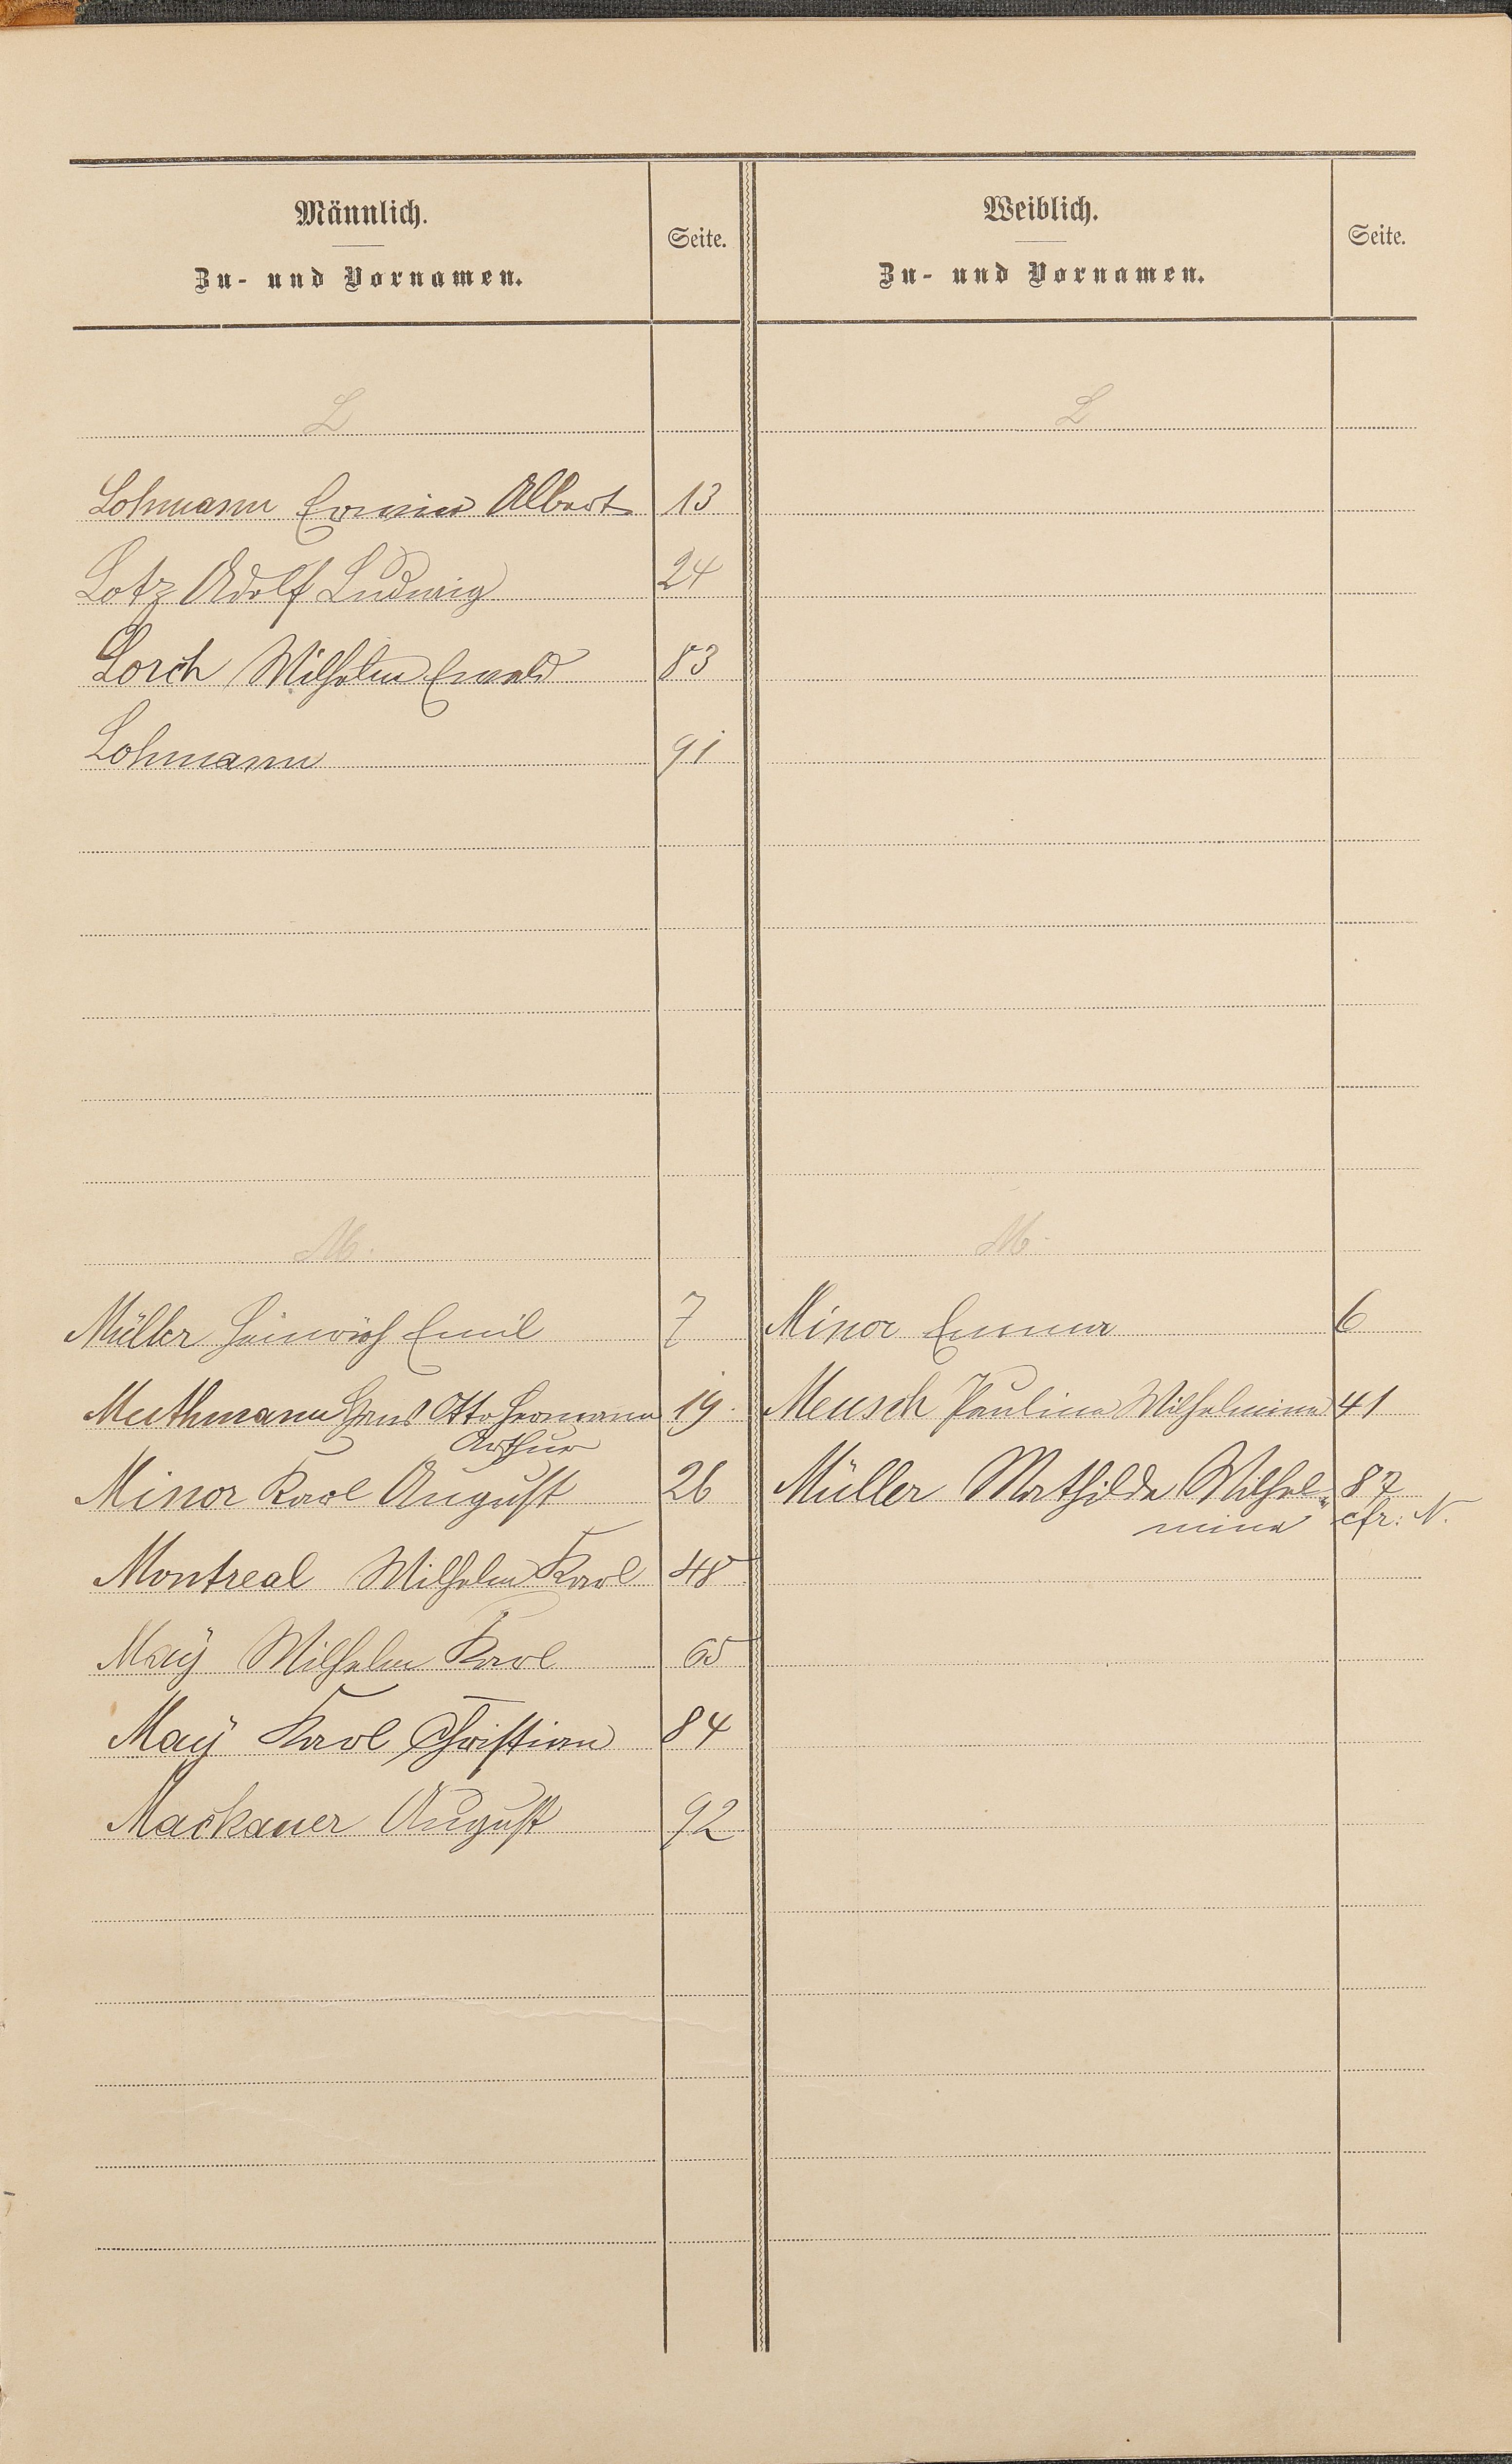 Männlich.
Zu- und Vornamen.
Seite.
Weiblich.
Zu- und Vornamen.
Seite.
L
L
Lohmann Erwin Albert 13
Lotz Adolf Ludwig 24
Lorch Wilhelm Ewald 83
Lohmann 91
M.
M.
Müller Heinrich Emil 7
Minor Emma 6
Muthmann Hans Otto Hermann 19.
Arthur
Meusch Pauline Wilhelmine 41
Minor Karl August 26
Müller Mathilde Wilhel- 87
mine cfr: N.
Montreal Wilhelm Karl 48
Maÿ Wilhelm Karl 65
Maÿ Karl Christian 84
Mackauer August 92